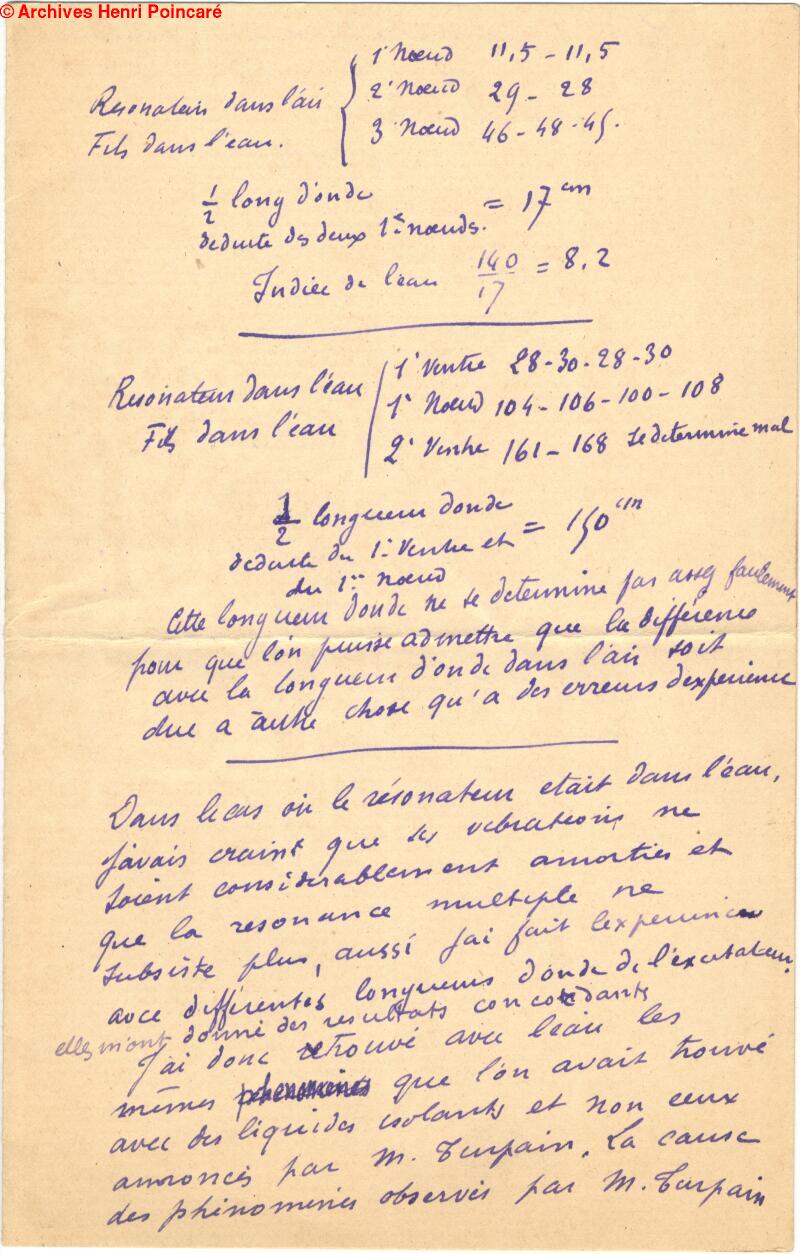 © Archives Henri Poincaré
1' Nœud 11,5 - 11,5
Resonateur dans l'air
2' Nœud 29 - 28
Fils dans l'eau.
3 Nœud 46 - 48 - 45.
1/2 long d'onde
deduite des deux 1er nœuds. = 17 cm
Indice de l'eau 140/17 = 8,2
1' Ventre 28 - 30 - 28 - 30
Resonateur dans l'éau
1' Nœud 104 - 106 - 100 - 108
Fils dans l'éau
2' Ventre 161 - 168 se determine mal
1/2 longueur donde
deduite du 1' Ventre et = 150 cm
du 1er nœud
Cette longueur donde ne se determine pas assez facilement
pour que l'ón puisse admettre que la différence
avec la longueur d'onde dans l'air soit
due a autre chose qu'a des erreurs dexperience
Dans le cas où le résonateur etait dans l'éau,
J'avais craint que ses vibrations ne
soient considerablement amorties et
que la resonance multiple ne
subsiste plus, aussi j'ai fait l'experience
avec différentes longueurs d'onde de l'excitateur,
elles m'ont donné des resultats concordants
J'ai donc retrouvé avec l'eau les
mêmes phenomenes que l'ón avait trouvé
avec des liquides isolants et non ceux
annoncés par M. Turpain. La cause
des phénomenes observés par M. Turpain